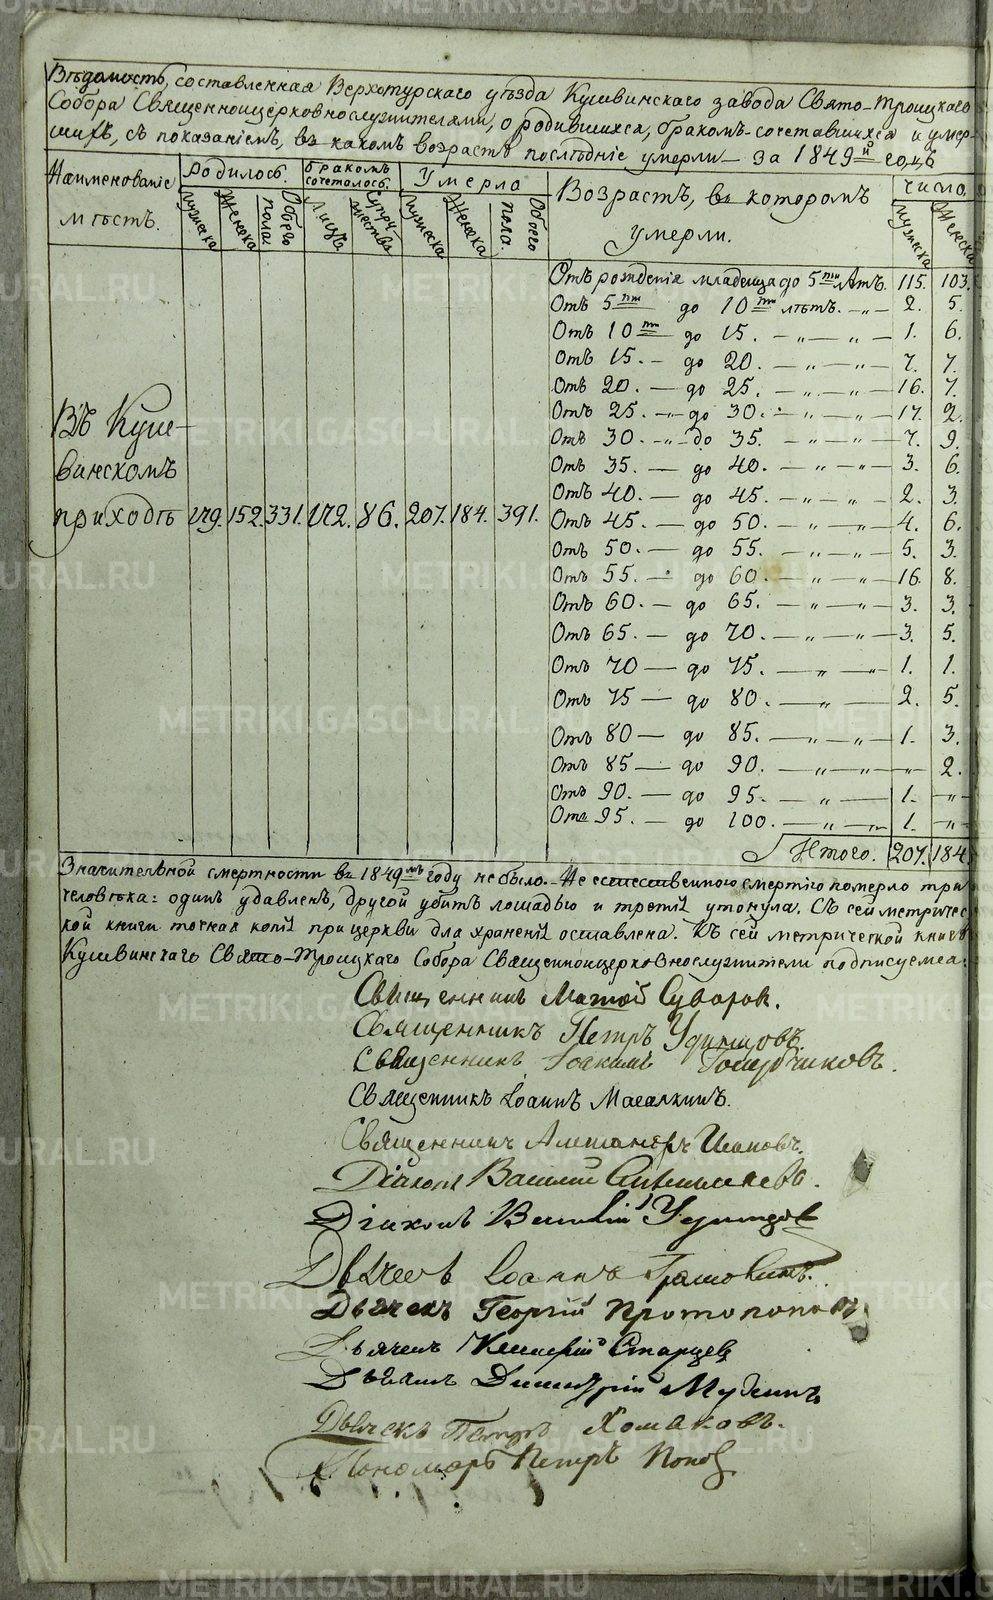 Вѣдомость, составленная Верхотурскаго уѣзда Кушвинскаго завода Свято-Троицкаго
Собора Священноцерковнослужителями, о родившихся, бракомъ-сочетавшихся и умер-
шихъ, съ показаніемъ, въ какомъ возрастѣ послѣдніе умерли — за 1849й годъ
Наименованіе мѣстъ.
Родилось.
Мужеска Женска Обоего пола
Бракомъ сочеталось.
Лицъ Супружествъ
Умерло
Мужеска Женска Обоего пола.
Возрастъ, въ которомъ умерли.
Число.
Мужеска Женска
Отъ рожденія младенца до 5ти Лѣтъ. 115. 103.
Отъ 5ти до 10ти лѣтъ. — „ — 2. 5.
Отъ 10ти до 15. — „ — „ — 1. 6.
Отъ 15. — до 20. — „ — „ — 7. 7.
Отъ 20. — до 25. — „ — „ — 16. 7.
Отъ 25. — „ — до 30. — „ — „ — 17. 2.
Отъ 30. — „ — до 35. — „ — „ — 7. 9.
Отъ 35. — до 40. — „ — „ — 3. 6.
Отъ 40. — до 45. — „ — „ — 2. 3.
Отъ 45. — до 50. — „ — „ — 4. 6.
Отъ 50. — до 55. — „ — „ — 5. 3.
Отъ 55. — до 60. — „ — „ — 16. 8.
Отъ 60. — до 65. — „ — „ — 3. 3.
Отъ 65. — до 70. — „ — „ — 3. 5.
Отъ 70 — до 75. — „ — „ 1. 1.
Отъ 75 — до 80. — „ 2. 5.
Отъ 80 — до 85. — „ — „ — 1. 3.
Отъ 85 — до 90. — „ — „ — „ — 2.
Отъ 90. — до 95. — „ — 1. — „ —
Отъ 95. — до 100. — „ — „ 1. — „ —
Итого. 207. 184.
Въ Куш-
винскомъ
приходѣ 179. 152. 331. 172. 86. 207. 184. 391.
Значительной смертности въ 1849мъ году не было. Не естественною смертію померло три
человѣка: одинъ удавленъ, другой убитъ лошадью и третій утонула. Съ сей метричес-
кой книги точная копія при церкви для храненія оставлена. Къ сей метрической книгѣ
Кушвинскаго Свято-Троицкаго Собора Священноцерковнослужители подписуемся:
Священникъ Матѳій Суворов.
Священникъ Петръ Удинцовъ.
Священникъ Іоакимъ
Священникъ Іоаннъ Масалкинъ.
Священникъ Александръ
Діаконъ Василій
Діаконъ Василій Удинцов
Дьячекъ Іоаннъ
Дьячекъ Георгій Протопоповъ
Дьячекъ Старцев
Дьячекъ Димитрій Мухинъ
Дьячекъ Петръ Хомяковъ.
Пономарь Петръ Попов
METRIKI.GASO-URAL.RU